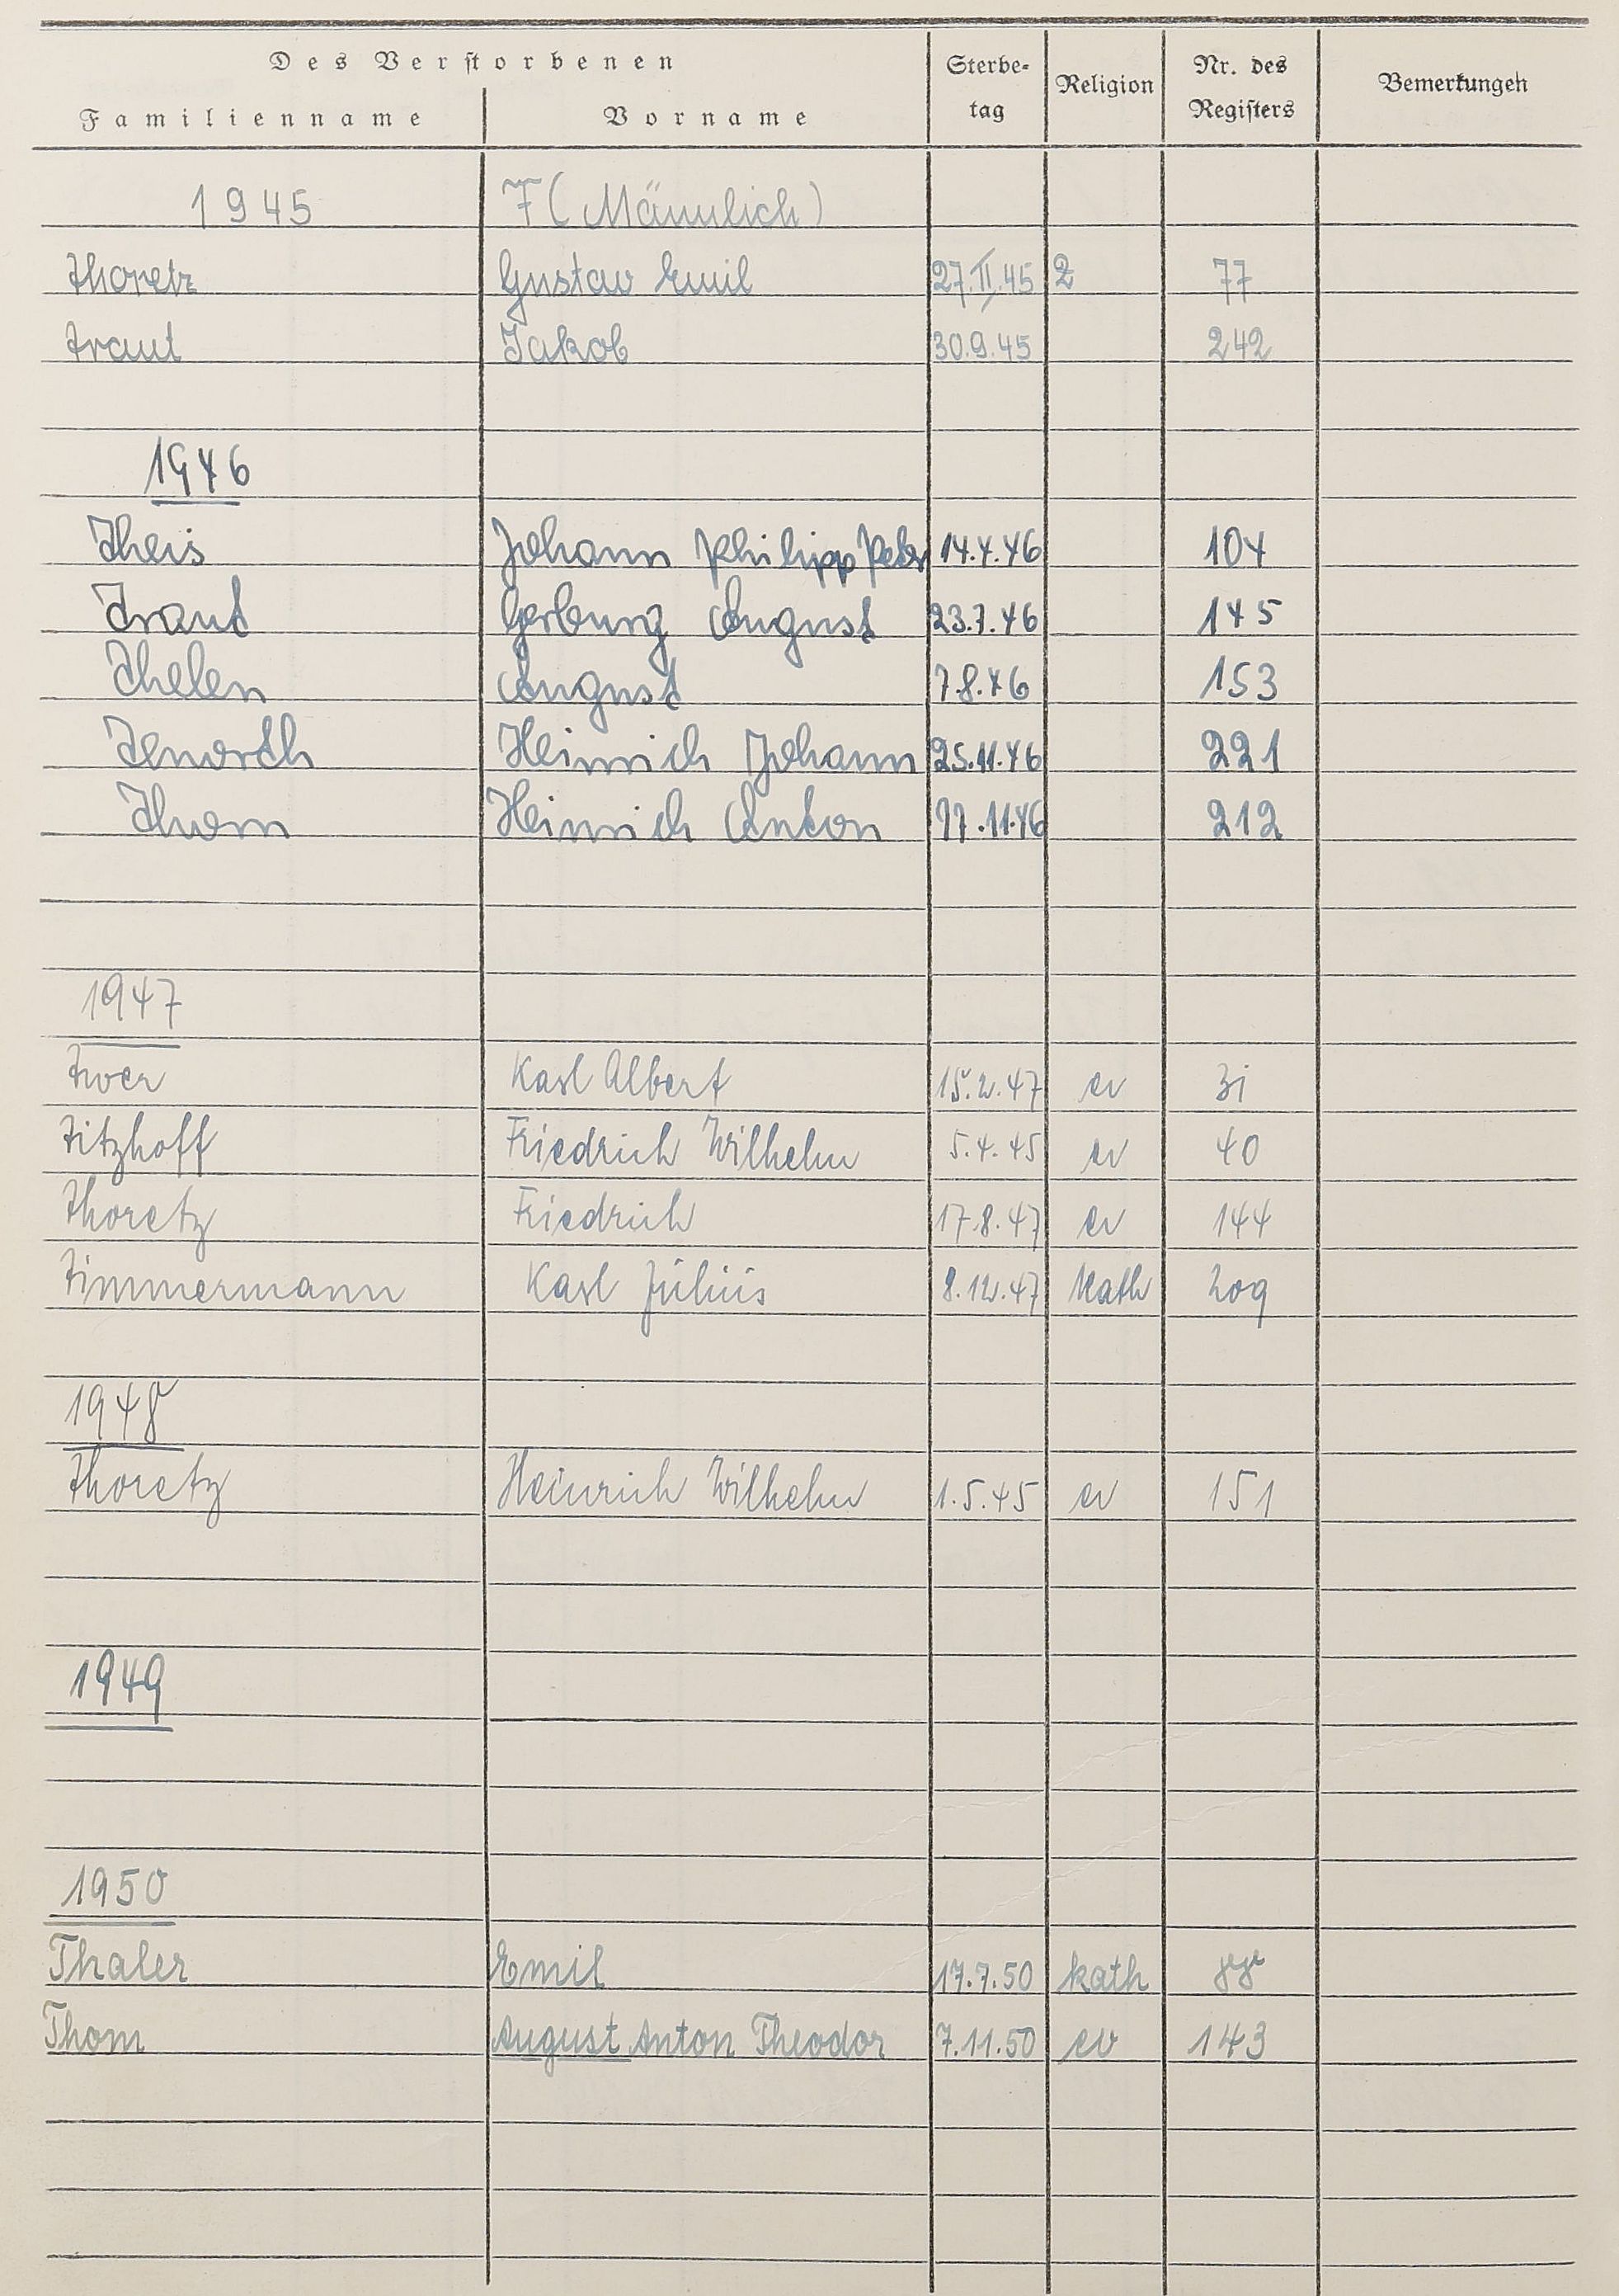 Des Verstorbenen
Familienname Vorname Sterbe-tag Religion Nr. des Registers Bemerkungen
1945 T (Männlich)
Thoretz Gustav Emil 27.II.45 2 77
Traut Jakob 30.9.45 242
1946
Theis Johann Philipp Peter 14.4.46 104
Traut August 23.7.46 145
Thelen August 7.8.46 153
Tenorth Heinrich Johann 25.11.46 221
Thom Heinrich Anton 11.46 212
1947
Karl Albert 15.2.47 ev 31
Titzhoff Friedrich Wilhelm 5.4.45 ev 40
Thoretz Friedrich 17.8.47 ev 144
Timmermann Karl Julius 8.12.47 Kath 209
1948
Thoretz Heinrich Wilhelm 1.5.45 ev 151
1949
1950
Thaler Emil 17.7.50 kath 88
Thom August Anton Theodor 7.11.50 ev 143